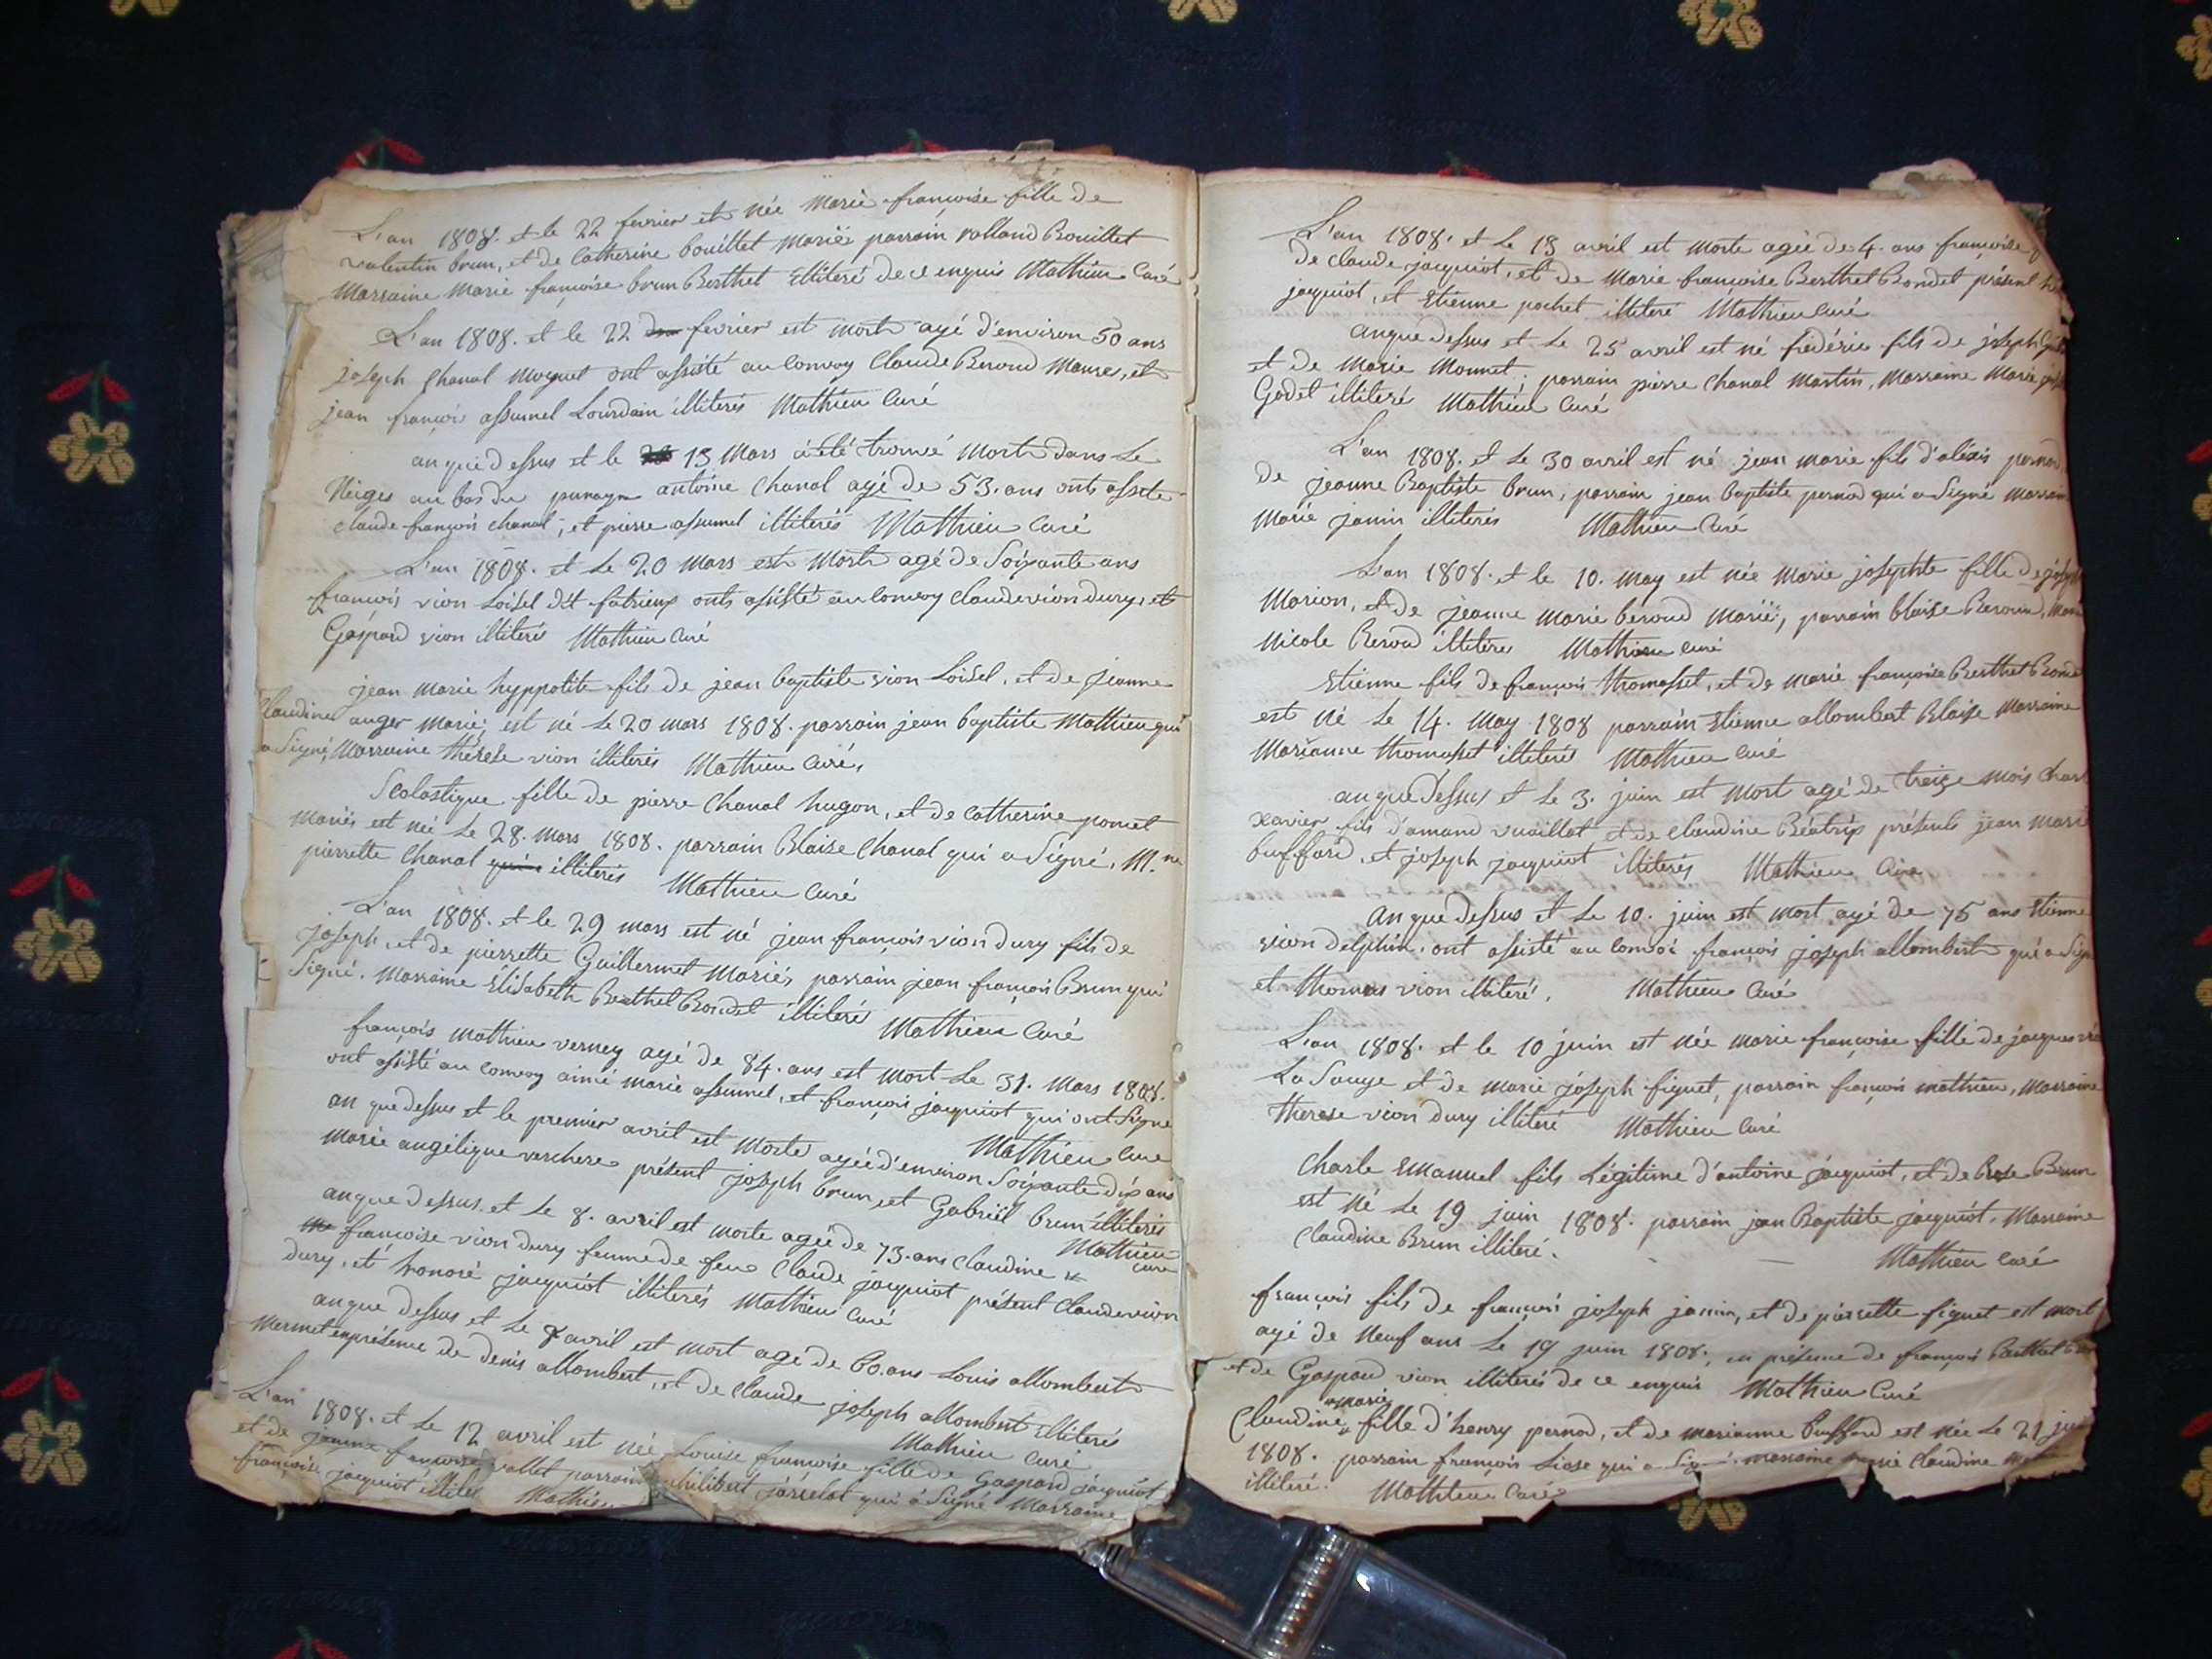 L'an 1808. et le 22 fevrier est née Marie françoise fille de
valentin brun, et de Catherine bouillet mariés parrain rolland Bouillet
Marraine Marie françoise brun Berthet illiteré de ce enquis Mathieu Curé
L'an 1808. et le 22 fevrier est mort agé d'environ 50 ans
joseph Chanal Moynet ont assisté au Convoy Claude Beroud et
jean françois assumel Lourdain illiterés Mathieu Curé
an que dessus et le 13 Mars a été trouvé mort dans Le
Neiges au bas du antoine Chanal agé de 53. ans ont assité
Claude françois Chanal, et pierre assumel illiterés Mathieu Curé
L'an 1808. et Le 20 Mars est Mort agé de Soixante ans
françois vion Loisel dit ont assisté au Convoy Claude vion dury, et
Gaspard vion illiterés Mathieu Curé
jean marie hyppolite fils de jean baptiste vion Loisel, et de jeanne
Claudine auger mariés est né Le 20 mars 1808. parrain jean baptiste Mathieu qui
a Signé, Marraine thérese vion illiterés Mathieu Curé,
Scolastique fille de pierre Chanal hugon, et de Catherine poncet
mariés est née Le 28. Mars 1808. parrain Blaise Chanal qui a Signé, M.ne
pierrette Chanal illiterés Mathieu Curé
L'an 1808. et le 29 mars est né jean françois vion dury fils de
joseph, et de pierrette Guillermet Mariés, parrain jean françois Brun qui
Signé. Marraine Elisabeth Berthet Bondet illiteré Mathieu Curé
françois Mathieu verney agé de 84. ans est mort Le 31. Mars 1808.
ont assisté au Convoy aimé marie assumel, et françois jacquiot qui ont Signé
Mathieu Curé
an que dessus et le premier avril est Morte agée d'environ Soixante dix ans
Marie angélique verchere présent joseph brun, et Gabriël brun illiterés
Mathieu Curé
an que dessus. et Le 8. avril est morte agée de 73. ans Claudine
françoise vion dury femme de feu Claude jacquiot présent Claude vion
dury, et honoré jacquiot illiterés Mathieu Curé
an que dessus et Le 8 avril est mort agé de 60. ans Louis allombert
Mermet en présence de denis allombert, et de Claude joseph allombert illiterés
Mathieu Curé
L'an 1808. et Le 12 avril est née Louise françoise fille de Gaspard jacquiot
et de jeanne françoise vallet parrain philibert qui a Signé Marraine
françoise jacquiot Mathieu
L'an 1808. et Le 13 avril est morte agée de 4. ans françoise
de Claude jacquiot, et de Marie françoise Berthet Bondet présent
jacquiot, et Etienne pochet illiteré Mathieu Curé
an que dessus et Le 25 avril est né frédéric fils de joseph
et de Marie Monnet, parrain pierre Chanal Martin, Marraine Marie
Godet illiteré Mathieu Curé
L'an 1808. et Le 30 avril est né jean marie fils d'aléxis pernod
de jeanne Baptiste brun, parrain jean baptiste pernod qui a Signé Marraine
Marie janin illiterés Mathieu Curé
L'an 1808. et le 10. may est née Marie josephte fille de joseph
Marion, et de jeanne marie béroud Mariés, parrain blaise Beroud,
Nicole Beroud illitéres Mathieu Curé
Etienne fils de françois thomasset, et de marie françoise Berthet
est né Le 14. May 1808 parrain Etienne allombert Blaise Marraine
Marianne thomasset illiterés Mathieu Curé
an que Dessus et Le 3. juin est mort agé de treize mois
xavier fils d'amand vuaillat et de Claudine Béatrix présents jean marie
buffard, et joseph jacquiot illiterés Mathieu Curé
an que dessus et Le 10. juin est mort agé de 75 ans Etienne
vion delphin. ont assisté au Convoi françois joseph allombert qui a
et thomas vion illiteré. Mathieu Curé
L'an 1808. et le 10 juin est née marie françoise fille de jacques
La Sauge et de marie joseph figuet, parrain françois mathieu, marraine
therese vion dury illiteré Mathieu Curé
Charle Emanuel fils Légitime d'antoine jacquiot, et de Rose Brun
est né Le 19 juin 1808. parrain jean Baptiste jacquiot. Marraine
Claudine Brun illiteré.
Mathieu Curé
françois fils de françois joseph janin, et de pierrette figuet est mort
agé de Neuf ans Le 19 juin 1808, en présence de françois Berthet
et de Gaspard vion illiterés de ce enquis Mathieu Curé
marie
Claudine fille d'henry pernod, et de marianne buffard est née Le 21
1808. parrain françois qui a Signé. marraine marie Claudine
illiteré. Mathieu Curé